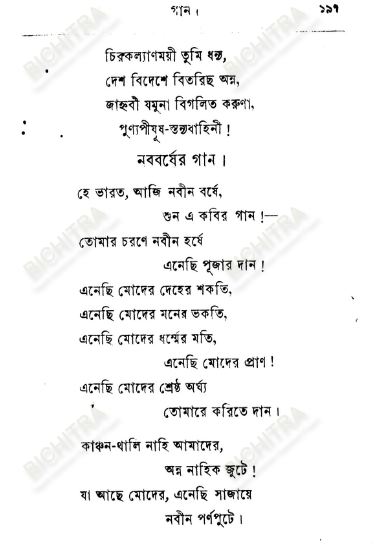 গান ।
১৯৭
চিরকল্যাণময়ী তুমি ধন্য,
দেশ বিদেশে বিতরিছ অন্ন,
জাহ্নবী যমুনা বিগলিত করুণা,
পুণ্যপীযূষ-স্তন্যবাহিনী !
নববর্ষের গান ।
হে ভারত, আজি নবীন বর্ষে,
শুন এ কবির গান !—
তোমার চরণে নবীন হর্ষে
এনেছি পূজার দান !
এনেছি মোদের দেহের শকতি,
এনেছি মোদের মনের ভকতি,
এনেছি মোদের ধর্ম্মের মতি,
এনেছি মোদের প্রাণ !
এনেছি মোদের শ্রেষ্ঠ অর্ঘ্য
তোমারে করিতে দান ।
কাঞ্চন-থালি নাহি আমাদের,
অন্ন নাহিক জুটে !
যা আছে মোদের, এনেছি সাজায়ে
নবীন পর্ণপুটে ।
BICHITRA
BICHITRA
BICHITRA
BICHITRA
BICHITRA
BICHITRA